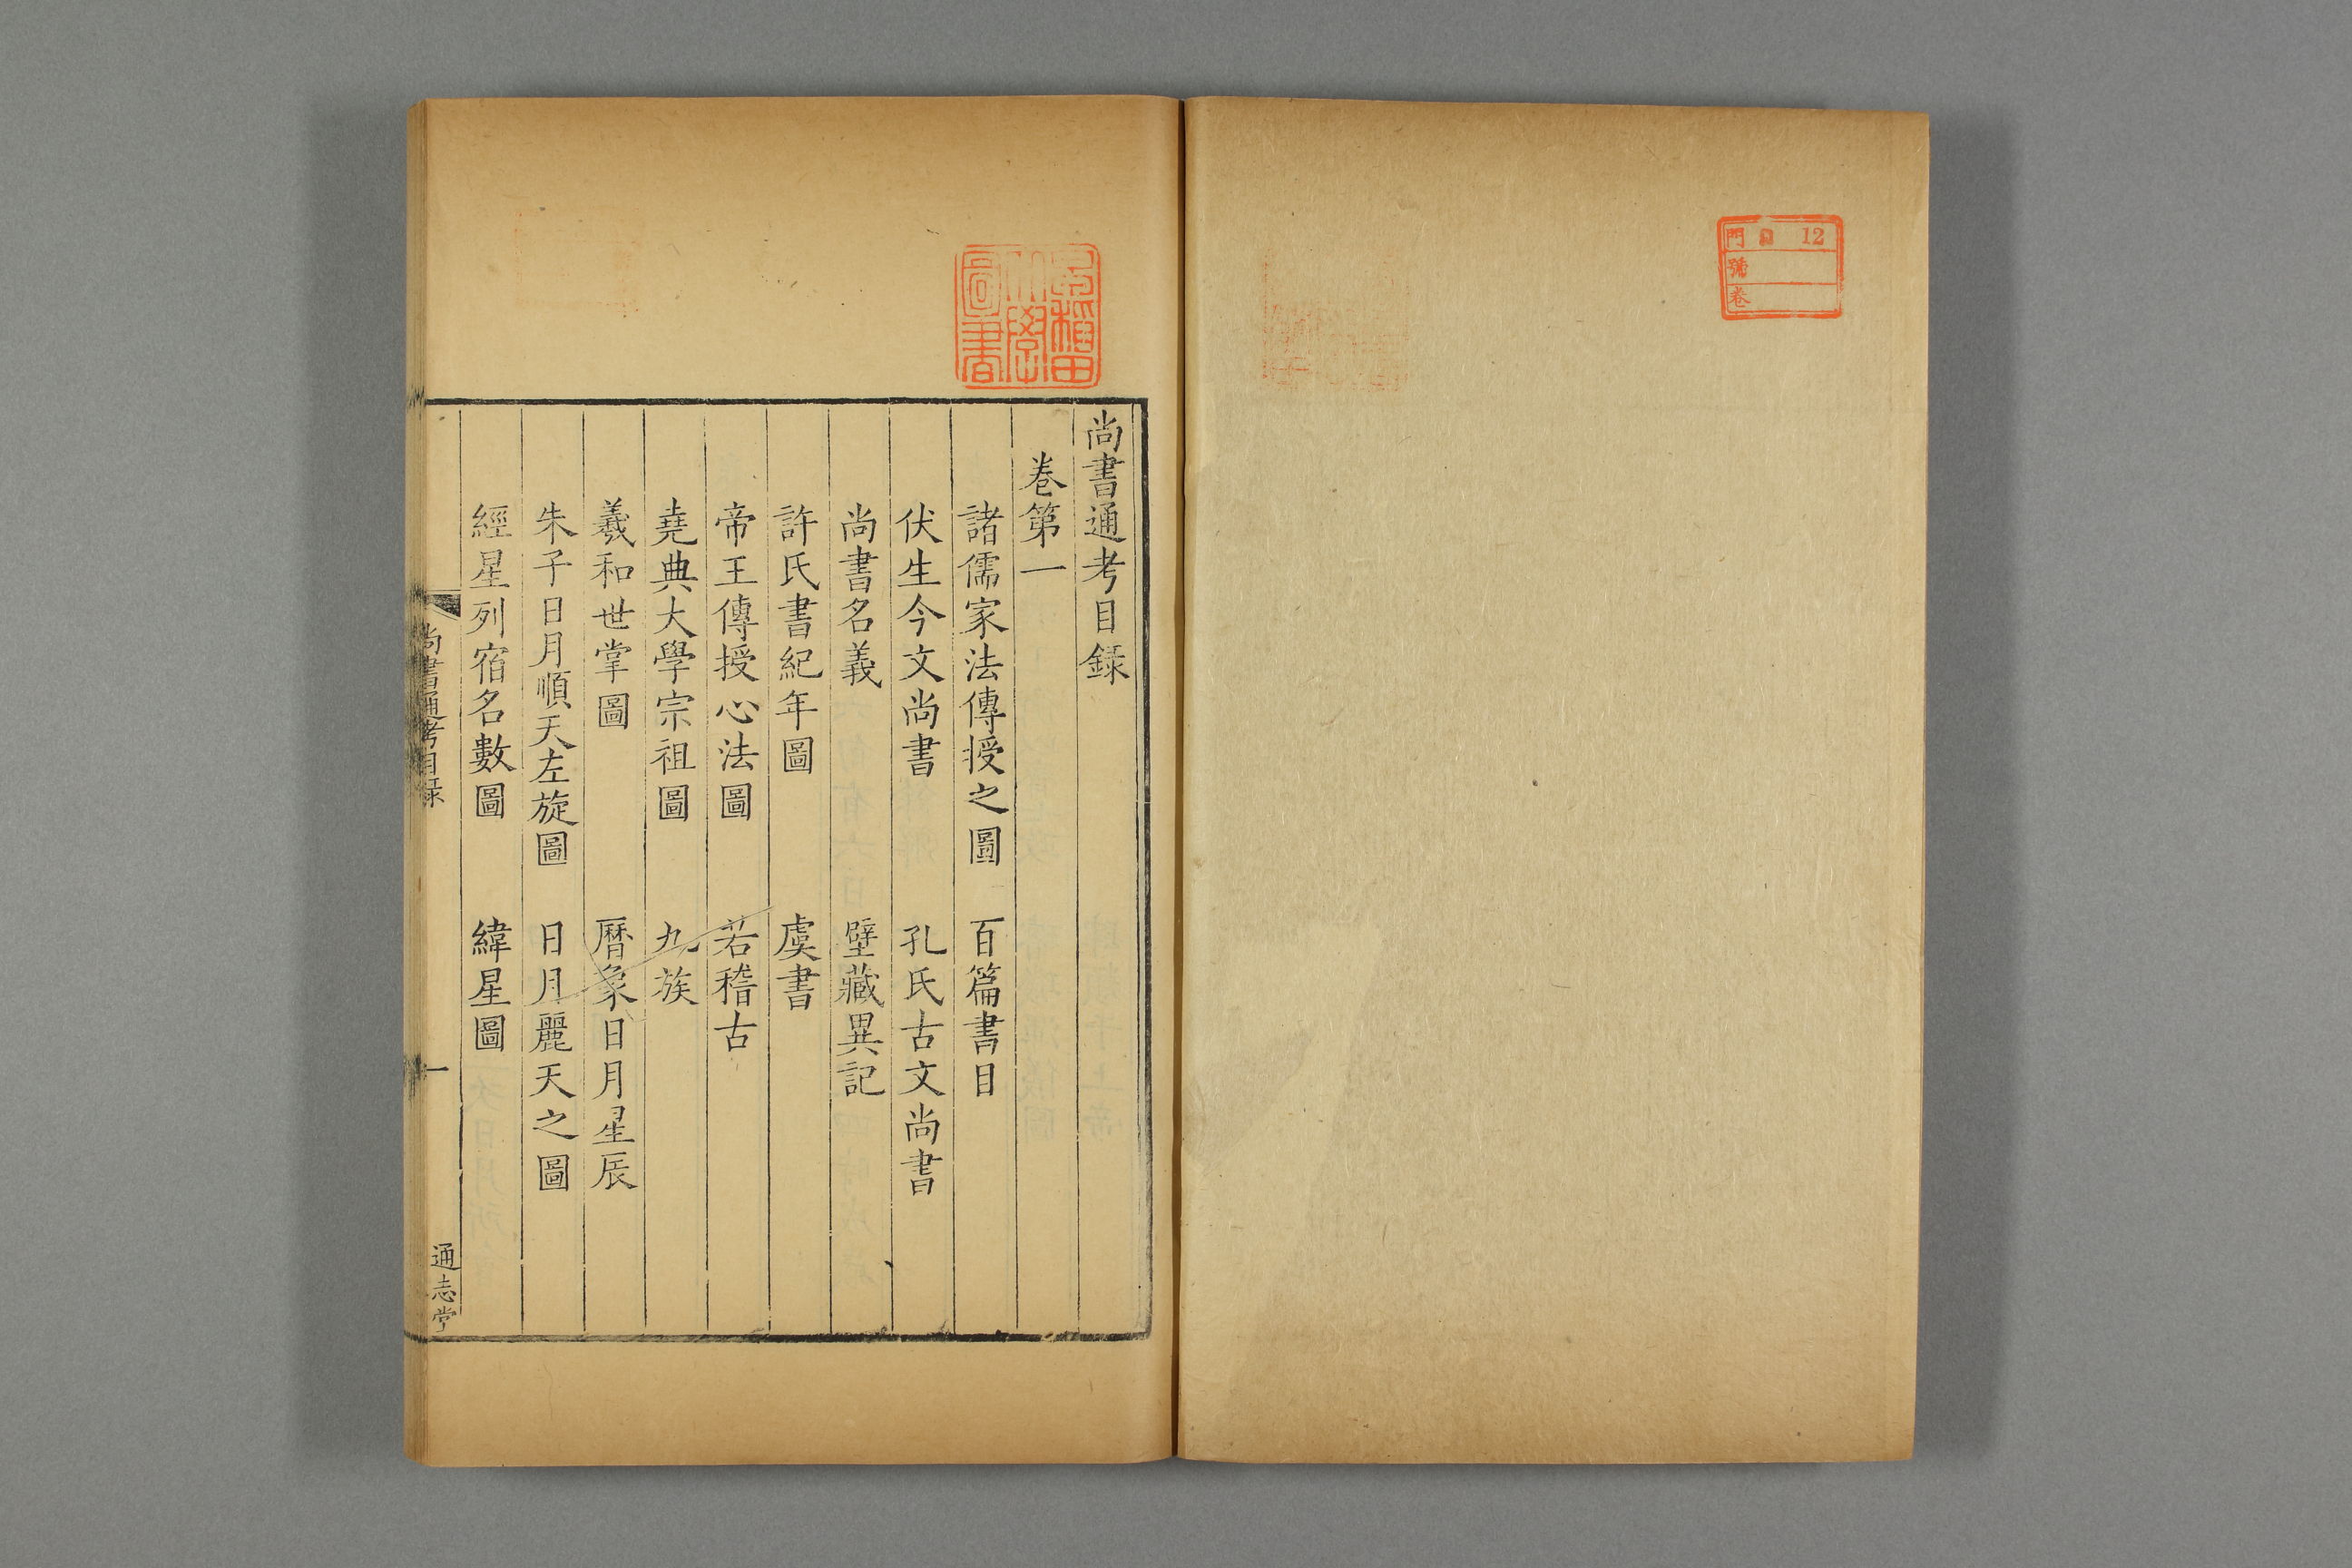 門 12
號
卷
早稲田大學圖書
尚書通考目録
卷第一
諸儒家法傳授之圖 百篇書目
伏生今文尚書 孔氏古文尚書
尚書名義 壁藏異記
許氏書紀年圖 虞書
帝王傳授心法圖 若稽古
堯典大學宗祖圖 九族
羲和世掌圖 曆象日月星辰
朱子日月順天左旋圖 日月麗天之圖
經星列宿名數圖 緯星圖
尚書通考目録 一 通志堂